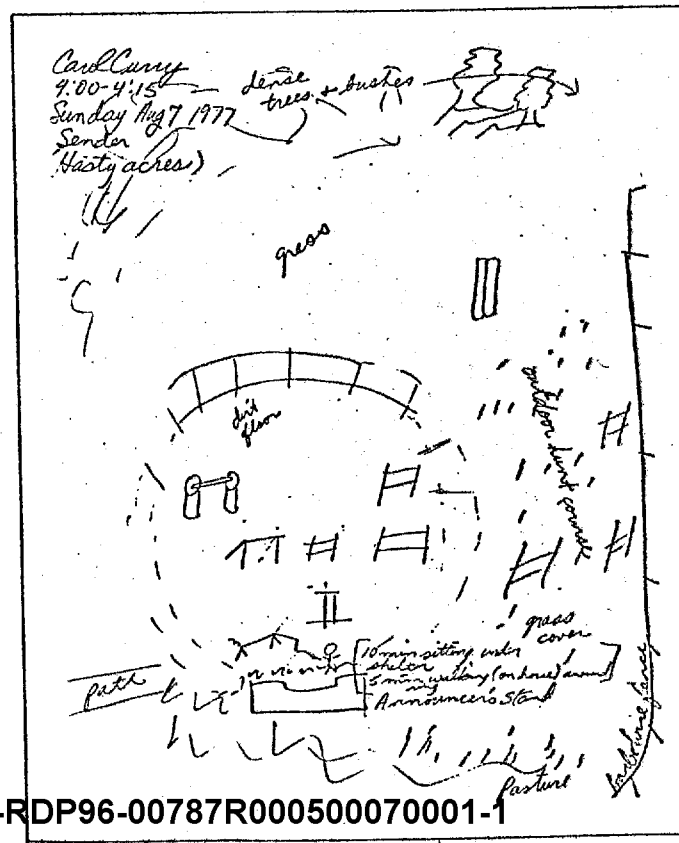 Carol Curry
4:00-4:15
Sunday Aug 7 1977
Sender
(Hasty acres)
dense
trees + bushes
grass
dirt
floor
outdoor hunt course
grass
cover
10 min sitting under
shelter
5 min walking (on horse) around
ring
Announcer's Stand
Path
Pasture
fence
-RDP96-00787R000500070001-1